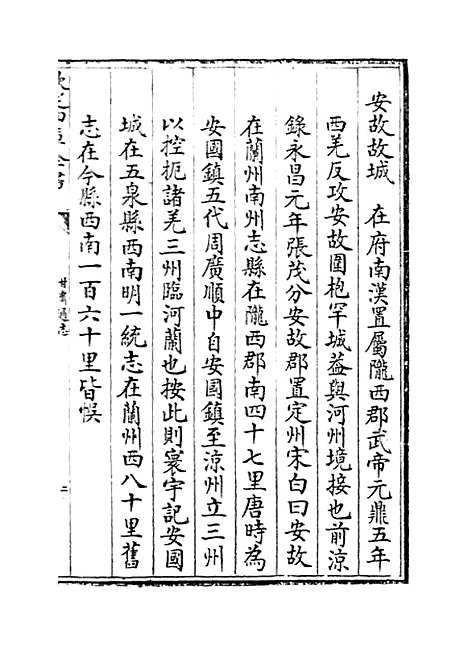 安故故城　在府南漢置屬隴西郡武帝元鼎五年
西羌反攻安故圍枹罕城益與河州境接也前涼
錄永昌元年張茂分安故郡置定州宋白曰安故
在蘭州南州志縣在隴西郡南四十七里唐時為
安國鎮五代周廣順中自安國鎮至涼州立三州
以控扼諸羌三州臨河蘭也按此則寰宇記安國
城在五泉縣西南明一統志在蘭州西八十里舊
志在今縣西南一百六十里皆悮
甘肅通志
二